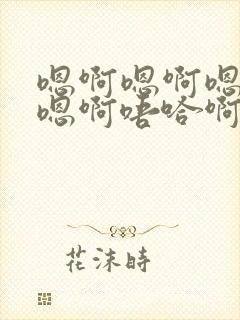 嗯啊嗯啊嗯
嗯啊唔哈啊
花沫時